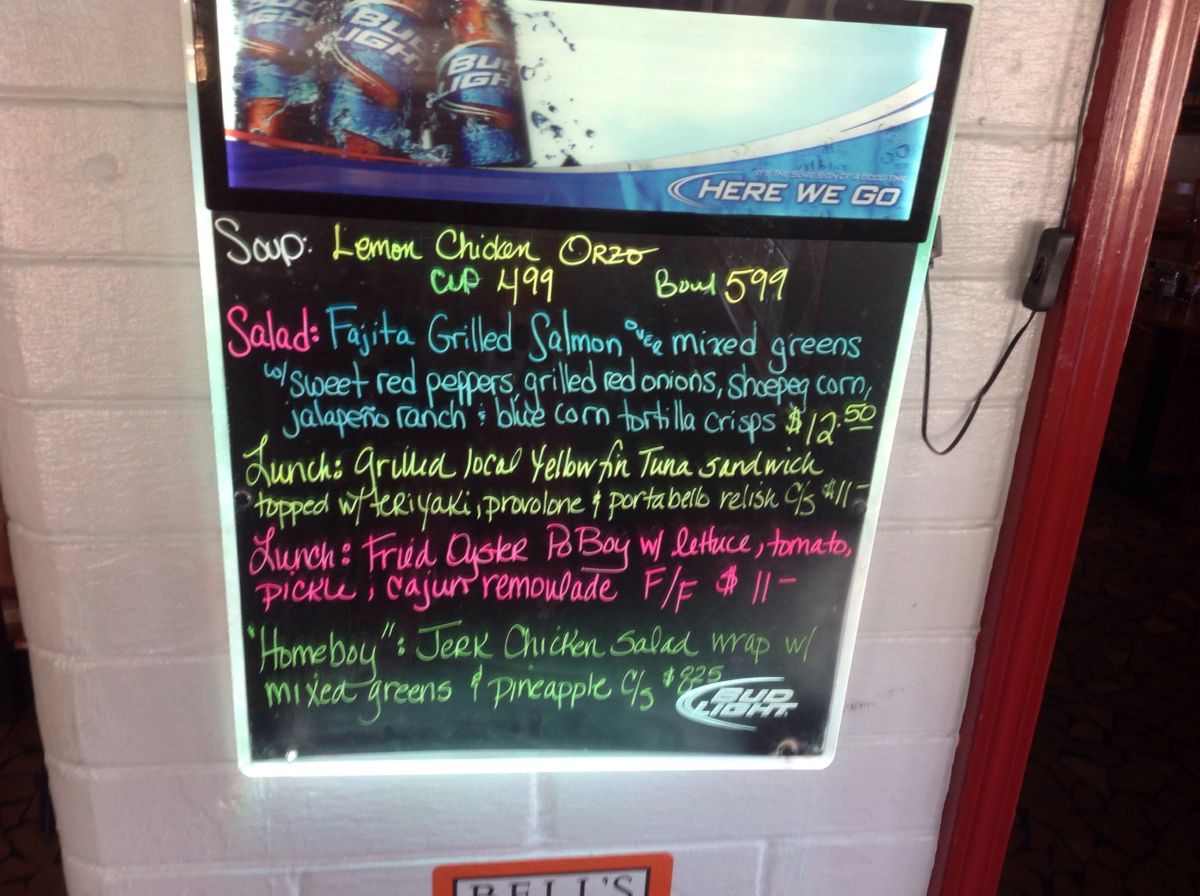 BUD LIGHT
BUD LIGHT
BUD LIGHT
IT'S THE SURE SIGN OF A GOOD TIME
HERE WE GO
Soup: Lemon Chicken Orzo
Cup 499 Bowl 599
Salad: Fajita Grilled Salmon over mixed greens
w/ sweet red peppers, grilled red onions, shoepeg corn,
jalapeño ranch & blue corn tortilla crisps $12.50
Lunch: Grilled local Yellowfin Tuna sandwich
topped w/ teriyaki, provolone & portabello relish C/S $11-
Lunch: Fried Oyster Po Boy w/ lettuce, tomato,
pickle, cajun remoulade F/F $11-
"Homeboy": Jerk Chicken salad wrap w/
mixed greens & pineapple C/S $825
BUD
LIGHT
BELL'S